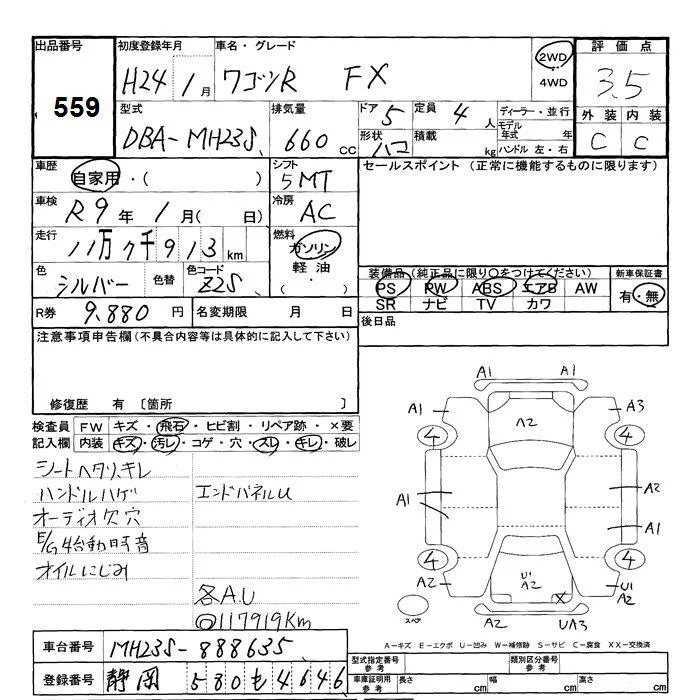 出品番号
559
初度登録年月
H24 1月
車名・グレード
ワゴンR FX
2WD
4WD
評価点
3.5
外装 内装
C C
型式
DBA-MH23S
排気量
660 cc
ドア 5
定員 4 人
形状 ハコ
積載 kg
ディーラー・並行
モデル年式 年
ハンドル 左・右
車歴
自家用・( )
シフト
5MT
車検
R9年 1月( 日)
冷房
AC
走行
11万7千913km
燃料
ガソリン
軽油
( )
色
シルバー
色替
色コード
Z2S
セールスポイント (正常に機能するものに限ります)
装備品(純正品に限り○をつけてください)
PS PW ABS エアB AW
SR ナビ TV カワ
新車保証書
有・無
R券 9,880 円
名変期限 月 日
後日品
注意事項申告欄(不具合内容等は具体的に記入して下さい)
修復歴 有 [箇所 ]
検査員記入欄
FW キズ・飛石・ヒビ割・リペア跡・×要
内装 キズ・汚レ・コゲ・穴・スレ・キレ・破レ
シートヘタリ、キレ
ハンドルハゲ
オーディオ欠穴
E/G始動時音
オイルにじみ
エンドパネルU
各A.U
◎117919Km
A1 A1
A1 A2 A3
4 4
A1 A2
A1
4 4
A2 U1 A2 X U1 A2
スペア
A2 UA3
A-キズ E-エクボ U-凹み W-補修跡 S-サビ C-腐食 XX-交換済
車台番号 MH23S-888635
登録番号 静岡 580 も 4646
型式指定番号
参考
類別区分番号
参考
車庫証明用
参考
長さ cm 幅 cm 高さ cm